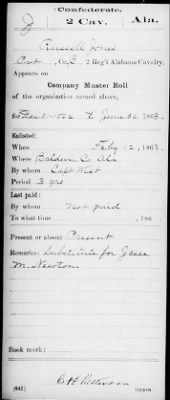 (Confederate.)
J 2 Cav. Ala.
Russell Jones
Co. B, 2 Reg't Alabama Cavalry.
Appears on
Company Muster Roll
of the organization named above,
for Dec 31 1862 to June 30, 1863.
Enlisted:
When Feby 12, 1863.
Where Baldwin Co Ala
By whom Capt West
Period 3 yrs
Last paid:
By whom Not paid
To what time , 186
Present or absent Present
Remarks: Substitute for Jesse
M. Newton
Book mark:
(642) Copyist.